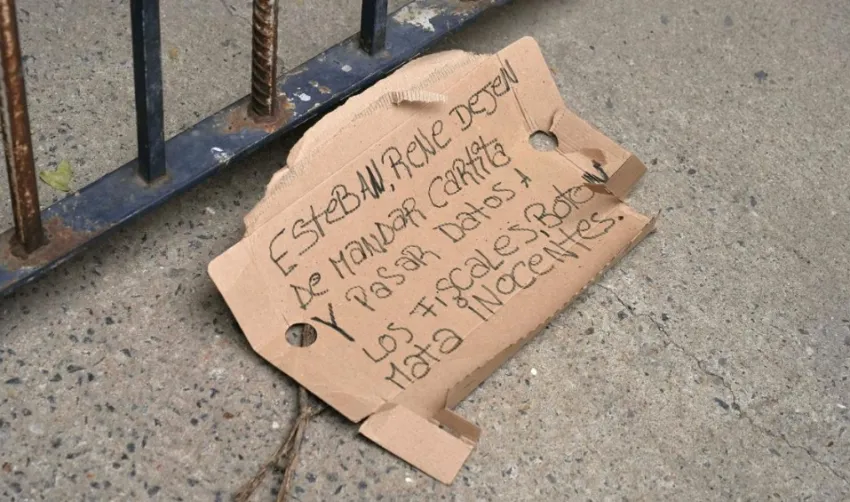 ESteBAN, RENe DEJEN
De MANDAR CARtitA
Y PASAR DAtOS A
LOS FISCALES, BOtON
MAtA INOCENTES.